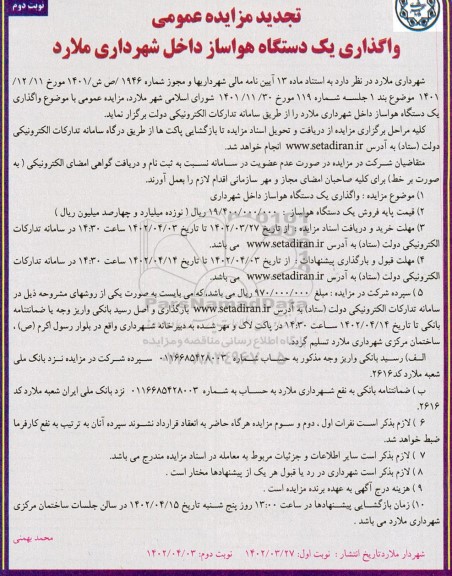 نوبت دوم
تجدید مزایده عمومی
واگذاری یک دستگاه هواساز داخل شهرداری ملارد
شهرداری ملارد در نظر دارد به استناد ماده ۱۳ آیین نامه مالی شهرداریها و مجوز شماره ۱۹۴۶ /ص ش/۱۴۰۱ مورخ ۱۱/ ۱۲/
۱۴۰۱ موضوع بند ۱ جلسه شماره ۱۱۹ مورخ ۱۴۰۱/۱۱/۳۰ شورای اسلامی شهر ملارد، مزایده عمومی با موضوع واگذاری
یک دستگاه هواساز داخل شهرداری ملارد را از طریق سامانه تدارکات الکترونیکی دولت برگزار نماید.
کلیه مراحل برگزاری مزایده از دریافت و تحویل اسناد مزایده تا بازگشایی پاکت ها از طریق درگاه سامانه تدارکات الکترونیکی
دولت (ستاد) به آدرس www.setadiran.ir انجام خواهد شد.
متقاضیان شرکت در مزایده در صورت عدم عضویت در سامانه نسبت به ثبت نام و دریافت گواهی امضای الکترونیکی ( به
صورت بر خط) برای کلیه صاحبان امضای مجاز و مهر سازمانی اقدام لازم را بعمل آورند.
۱) موضوع مزایده : واگذاری یک دستگاه هواساز داخل شهرداری
۲) قیمت پایه فروش یک دستگاه هواساز : ۱۹/۴۰۰/۰۰۰/۰۰۰ ریال ( نوزده میلیارد و چهارصد میلیون ریال )
۳) مهلت خرید و دریافت اسناد مزایده : از تاریخ ۱۴۰۲/۰۳/۲۷ تا تاریخ ۱۴۰۲/۰۴/۰۳ ساعت ۱۴:۳۰ در سامانه تدارکات
الکترونیکی دولت (ستاد) به آدرس www.setadiran.ir می باشد.
۴) مهلت قبول و بارگذاری پیشنهادات : از تاریخ ۱۴۰۲/۰۴/۰۳ تا تاریخ ۱۴۰۲/۰۴/۱۴ ساعت ۱۴:۳۰ در سامانه تدارکات
الکترونیکی دولت (ستاد) به آدرس www.setadiran.ir می باشد.
۵) سپرده شرکت در مزایده : مبلغ ۹۷۰/۰۰۰/۰۰۰ ریال می باشد،که می بایست به صورت یکی از روشهای مشروحه ذیل در
سامانه تدارکات الکترونیکی دولت (ستاد) به آدرس www.setadiran.ir بارگذاری و اصل رسید بانکی واریز وجه یا ضمانتنامه
بانکی تا تاریخ ۱۴۰۲/۰۴/۱۴ ساعت ۱۴:۳۰ در پاکت لاک و مهر شده به دبیرخانه شهرداری واقع در بلوار رسول اکرم (ص) ،
ساختمان مرکزی شهرداری ملارد تسلیم گردد.
الف) رسید بانکی واریز وجه مذکور به حساب شماره ۰۱۱۶۶۸۵۴۲۸۰۰۳ سپرده شرکت در مزایده نزد بانک ملی
شعبه ملارد کد۲۶۱۶.
ب ) ضمانتنامه بانکی به نفع شهرداری ملارد به حساب به شماره ۰۱۱۶۶۸۵۴۲۸۰۰۳ نزد بانک ملی ایران شعبه ملارد کد
۲۶۱۶.
۶ ) لازم بذکر است نفرات اول ، دوم و سوم مزایده هرگاه حاضر به انعقاد قرارداد نشوند سپرده آنان به ترتیب به نفع کارفرما
ضبط خواهد شد.
۷ ) لازم بذکر است سایر اطلاعات و جزئیات مربوط به معامله در اسناد مزایده مندرج می باشد.
۸ ) لازم بذکر است شهرداری در رد یا قبول هر یک از پیشنهادها مختار است .
۹ ) هزینه درج آگهی به عهده برنده مزایده است .
۱۰) زمان بازگشایی پیشنهادها در ساعت ۱۳:۰۰ روز پنج شنبه تاریخ ۱۴۰۲/۰۴/۱۵ در سالن جلسات ساختمان مرکزی
شهرداری ملارد می باشد .
محمد بهمنی
شهردار ملارد تاریخ انتشار : نوبت اول: ۱۴۰۲/۰۳/۲۷ نوبت دوم: ۱۴۰۲/۰۴/۰۳